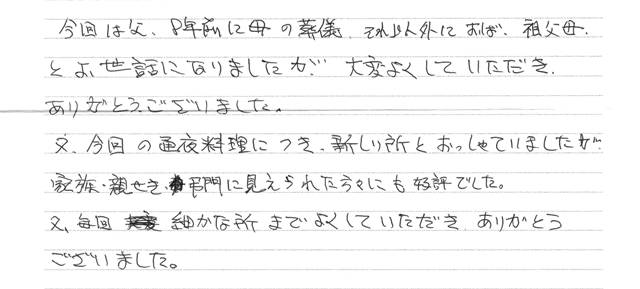 今回は父、8年前に母の葬儀、それ以外におば、祖父母、
とよ、世話になりましたが、大変よくしていただき、
ありがとうございました。
又、今回の通夜料理につき、新しい所とおっしゃていましたが
家族・親せき・弔門に見えられた方々にも好評でした。
又、毎回 細かな所までよくしていただき、ありがとう
ございました。